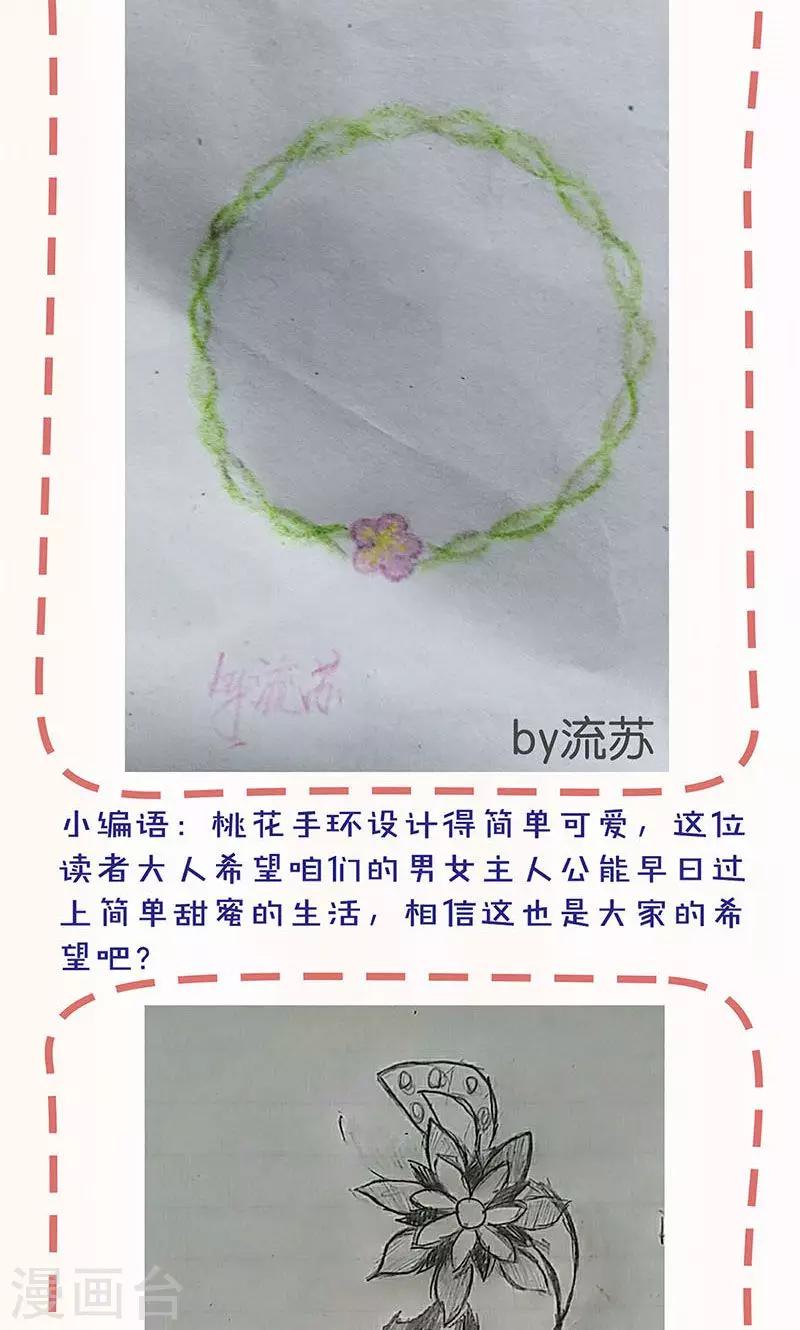 流苏
by流苏
小编语：桃花手环设计得简单可爱，这位
读者大人希望咱们的男女主人公能早日过
上简单甜蜜的生活，相信这也是大家的希
望吧？
漫画台